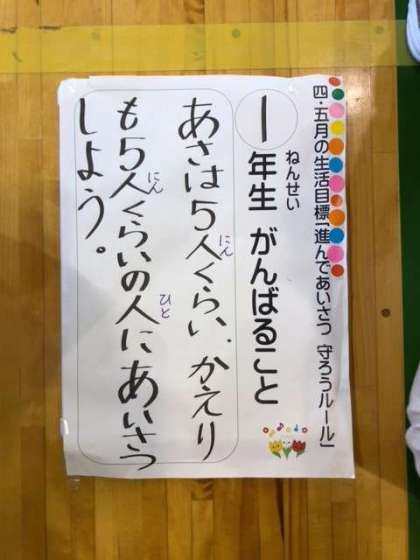 四・五月の生活目標「進んであいさつ 守ろうルール」
1年生 がんばること
ねんせい
あさは5人くらい、かえり
にん
も5人くらいの人にあいさつ
にん
ひと
しよう。